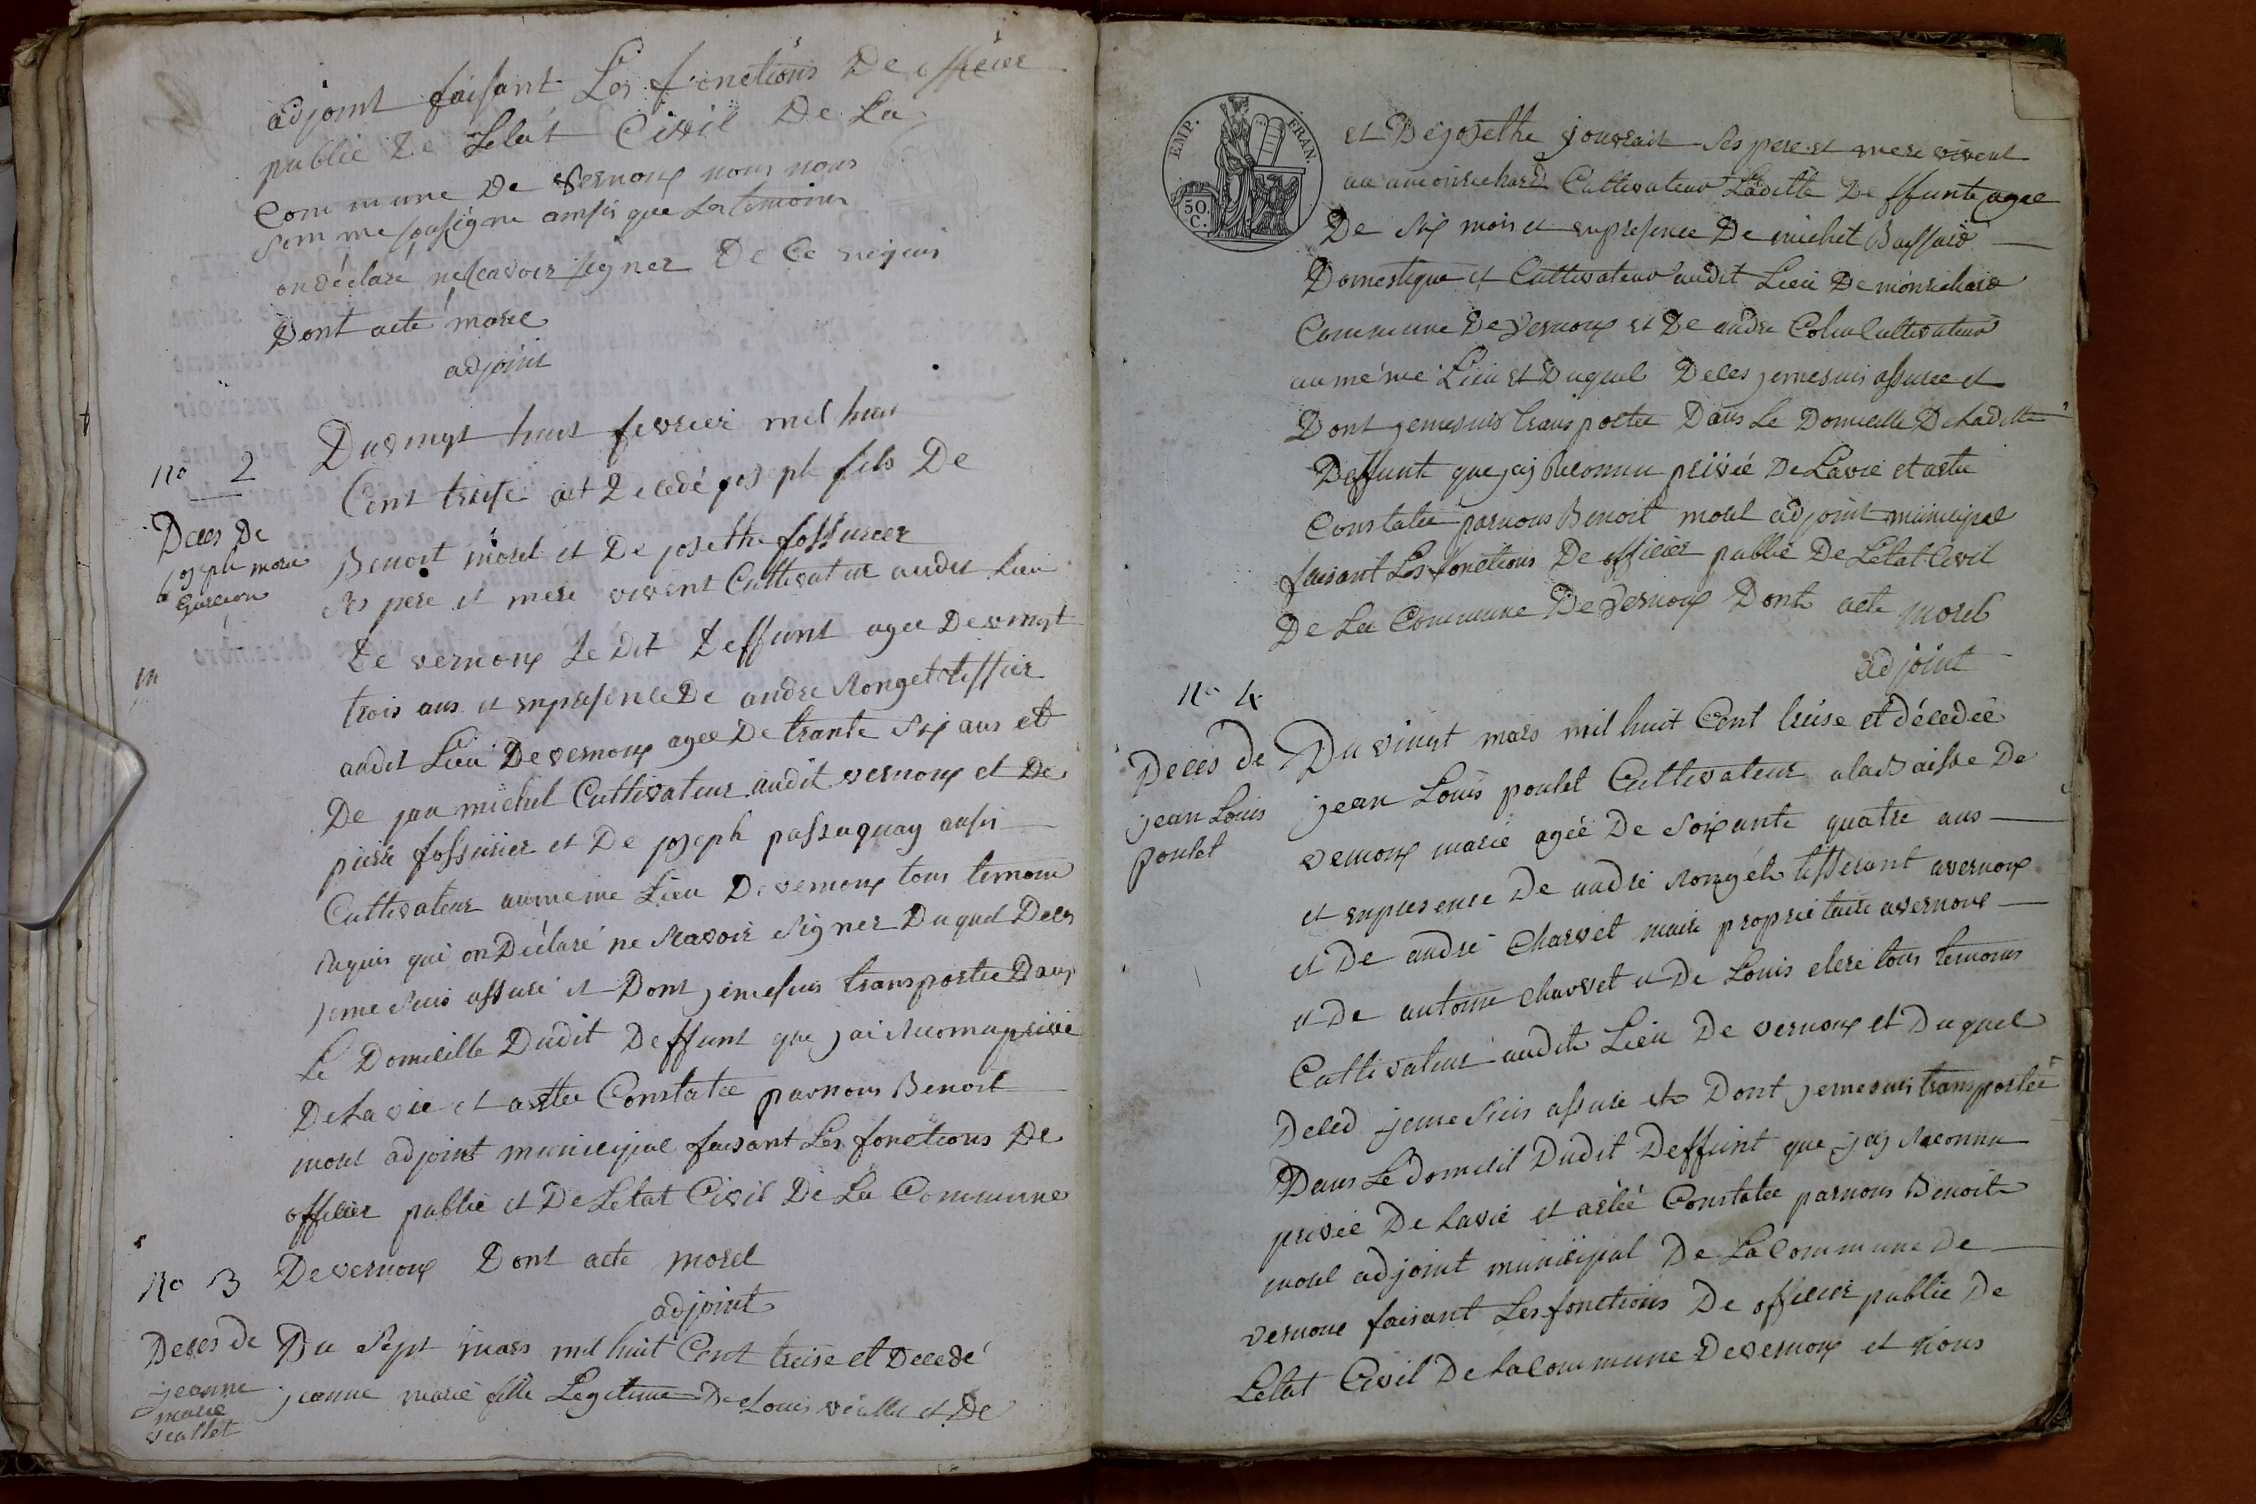 adjoint faisant Les fonctions De officier
public De Letat Civil De La
Commune De Vernoux nous nous
somme sousigne ausis que Les temoins
on déclaré ne scavoir signer De Ce requis
Dont acte morel
adjoint
no 2
Deces De
joseph morel
garcon
Du vingt huit fevrier mil huit
Cent treise est Decedé joseph fils De
Benoit morel et De josethe fossurier
ses pere et mere vivent Cultivateur audit Lieu
De vernoux Le Dit Deffunt agee De vingt
trois ans et enpresence De andre Ronget tissier
audit Lieu De vernoux agee De trante Six ans et
De jan michel Cultivateur audit vernoux et De
pierre fossurier et De joseph passaquay ausis
Cultivateur aumeme Lieu De vernoux tous temoin
requis qui on Déclaré ne Scavoir Signer Duquel Deces
jeme Suis assuré et Dont jemesuis transportée Dans
Le Domicille Dudit Deffunt que jai Reconu privé
De La vie et a ettee Constatee parnous Benoit
morel adjoint municipal faisant Les fonctions De
officier public et De Letat Civil De La Commune
De vernoux Dont acte morel
adjoint
no 3
Deces de
jeanne
marie
viallet
Du Sept mars mil huit Cent treise et Decedé
jeanne marie fille Legitime De Louis viallet et De
EMP. FRAN.
50.
C.
et De josethe jouvrait Ses pere et mere vivent
au amonrichard Cultivateur Laditte De ffunte agee
De Six mois et enpresence De michel Bussard
Domestique et Cultivateur audit Lieu De monrichard
Commune De Vernoux et De andre Colin Cultivateur
au même Lieu et Duquel Deces jemesuis assuree et
Dont jemesuis transportee Dans Le Domicille De Laditte
Deffunte que jaj Reconnu privée De Lavie et aette
Constatee parnous Benoit morel adjoint municipal
faisant Les fonctions De officier public De Letat Civil
De La Commune De Vernoux Dont acte morel
adjoint
no 4
Deces de
jean Louis
poulet
Du vingt mars mil huit Cent treise et décedée
jean Louis poulet Cultivateur a De
vernoux marie agée De Soixante quatre ans
et enpresence De andre Rongét tisserant avernoux
et De andré Charvet maire proprietaire avernoux
et De antoine Charvet et De Louis clere tous temoins
Cultivateur audit Lieu De vernoux et Duquel
Deced jeme Suis assure et Dont jemesuis transportée
Dans Le Domicil Dudit Deffunt que jaj Reconnu
privée De Lavie et aétée Constatee parnous Benoit
morel adjoint municipal De La Commune De
vernoux faisant Les fonctions De officier public De
Letat Civil De La Commune De vernoux et Nous